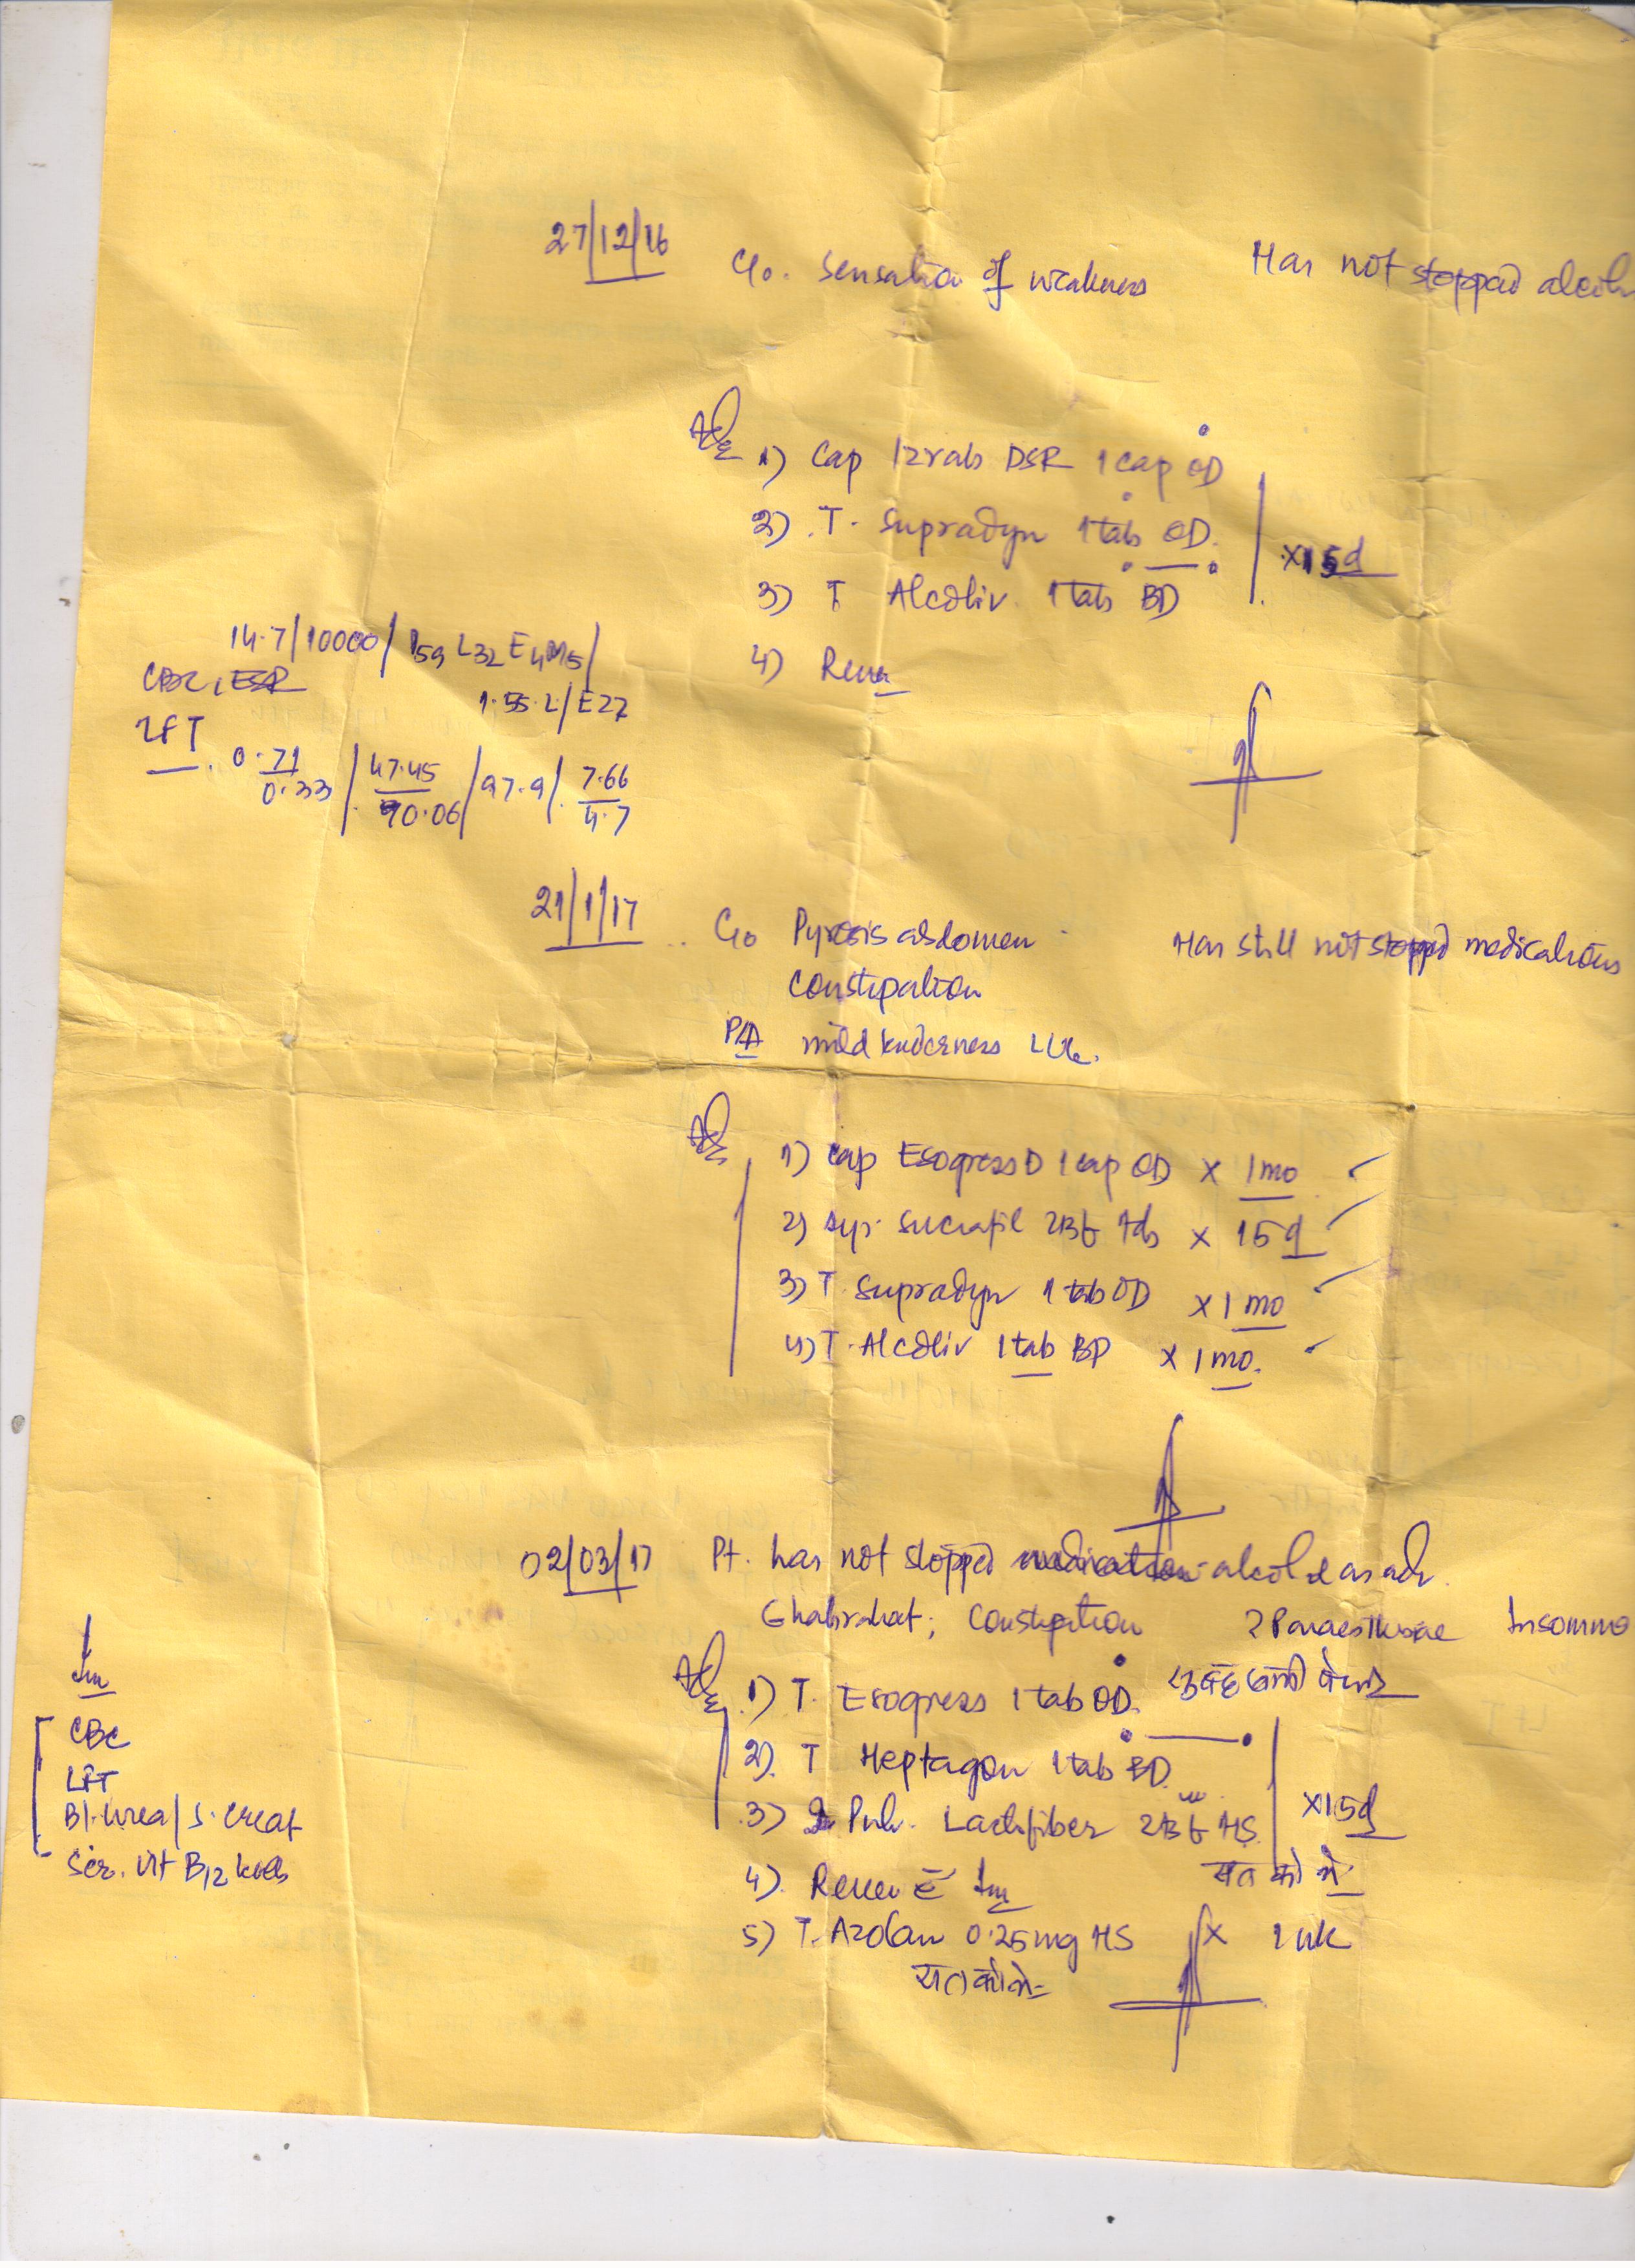 27/12/16
C/o. Sensation of weakness
Has not stopped alcoh
Adv
1) Cap Izrab DSR 1 cap OD
2) . T. Supradyn 1 tab OD.
3) T Alcoliv. 1 tab BD
x 15d
4) Revu
14.7/10000/P59 L32 E4 M5/
CBC, ESR
1.55.L/E27
LFT
0.71 / 0.33 / 47.45 / 90.06 / 97.9 / 7.66 / 4.7
21/1/17
C/o Pyrosis abdomen
Has still not stopped medications
Constipation
P/A mild tenderness
Adv
1) Cap Esogress D 1 cap OD x 1 mo
2) Syp. Sucrafil 2 tds x 15d
3) T. Supradyn 1 tab OD x 1 mo
4) T. Alcoliv 1 tab BD x 1 mo.
02/03/17
Pt. has not stopped medication alcohol as adv.
Ghabrahat; Constipation ? Paraesthesiae Insomn
Adv
1) T. Esogress 1 tab OD.
2). T Heptagon 1 tab BD.
3) Pulv. Lactifiber HS.
x 15d
रात को
4). Revu c̄ Inv
5) T. Azolam 0.25mg HS x 1 wk
रात को
Inv
CBC
LFT
Bl. Urea/S. Creat
Ser. Vit B12 levels